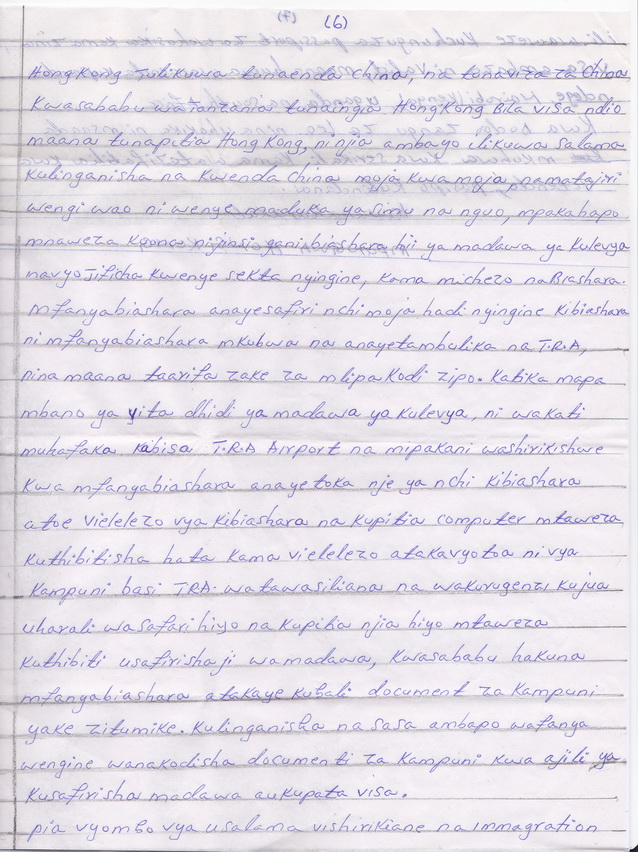 (6)
HongKong tulikuwa tunaenda China, na tunaviza za China
Kwasababu watanzania tunaingia HongKong Bila visa ndio
maana tunapitia HongKong, ni njia ambayo ilikuwa salama
Kulinganisha na Kwenda China moja kwa moja, namatajiri
wengi wao ni wenye maduka ya simu na nguo, mpakahapo
mnaweza Kuona nijinsi gani biashara hii ya madawa ya kulevya
navyojificha kwenye sekta nyingine, Kama michezo na Biashara.
mfanyabiashara anayesafiri nchi moja hadi nyingine Kibiashara
ni mfanyabiashara mkubwa na anayetambulika na T.R.A,
nina maana taarifa zake za mlipa Kodi zipo. Katika mapa
mbano ya vita dhidi ya madawa ya kulevya, ni wakati
muhafaka Kabisa T.R.A Airport na mipakani washirikishwe
Kwa mfanyabiashara anayetoka nje ya nchi Kibiashara
atoe vielelezo vya Kibiashara na Kupitia computer mtaweza
Kuthibitisha hata Kama vielelezo atakavyotoa ni vya
Kampuni basi TRA. watawasiliana na wakurugenzi Kujua
uharali wa safari hiyo na Kupitia njia hiyo mtaweza
Kuthibiti usafirishaji wamadawa, Kwasababu hakuna
mfanyabiashara atakaye kubali document za Kampuni
yake zitumike. Kulinganisha na sasa ambapo wafanya
wengine wanakodisha documenti za Kampuni Kwa ajili ya
Kusafirisha madawa au Kupata visa.
pia vyombo vya usalama vishirikiane na Immagration